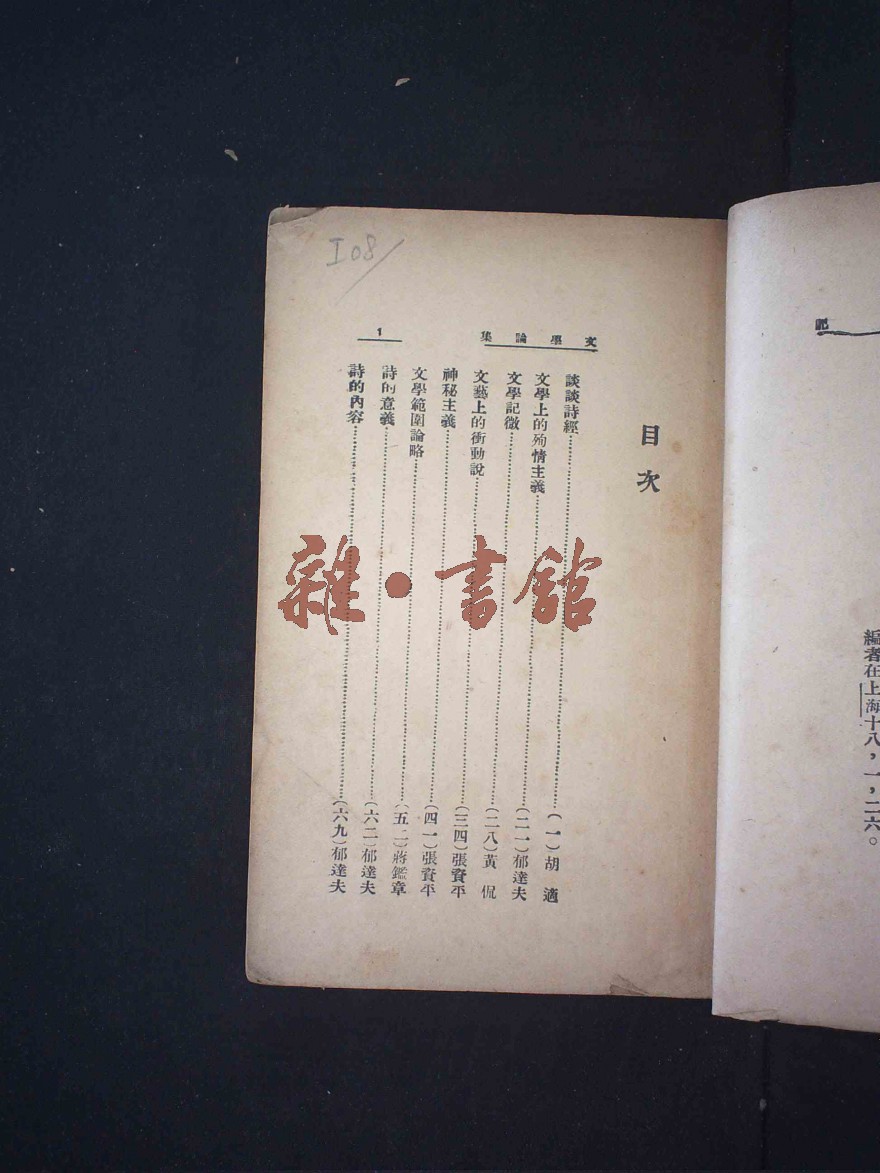 I08/
文學論集
1
目次
談談詩經……(一)胡適
文學上的殉情主義……(二一)郁達夫
文學記微……(二八)黃侃
文藝上的衝動說……(三四)張資平
神秘主義……(四一)張資平
文學範圍論略……(五二)蔣鑑章
詩的意義……(六二)郁達夫
詩的內容……(六九)郁達夫
雜·書館
記
編者在上海十八,一,二六。